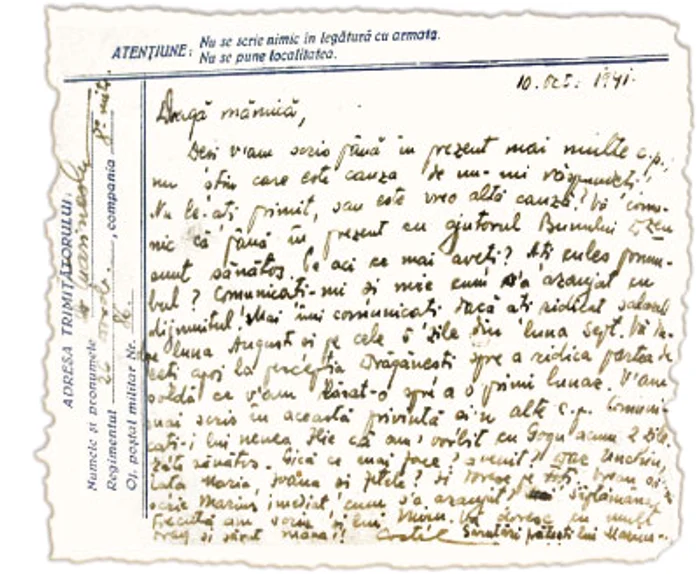 ATENȚIUNE: Nu se scrie nimic în legătură cu armata.
Nu se pune localitatea.
10. Oct. 1941.
Dragă mămică,
Deși v'am scris până în prezent mai multe c.p.,
nu știu care este cauza de nu-mi răspundeți!
Nu le-ați primit, sau este vreo altă cauză? Vă comu-
nic că până în prezent cu ajutorul Bunului
sunt sănătos. Pe aci ce mai aveți? Ați cules porum-
bul? Comunicați-mi și mie cum s'a aranjat cu
dijmuitul. Mai îmi comunicați dacă ați ridicat
pe luna August și pe cele 5 zile din luna Sept.
apoi la percepția Drăgănești spre a ridica partea de
soldă ce v'am lăsat-o spre a o primi lunar. V'am
mai scris în această privință și'n alte c.p. Comuni-
cați-i lui nenea Ilie că am vorbit cu Gogu acum 2 zile.
sănătos. Gică ce mai face? Dar unchiu,
tata Maria, Ioana și fetele?
scrie Marius imediat cum s'a aranjat? Săptămâna
trecută am scris și lui Vă doresc cu mult
drag și sărut mâna!! Costel Sărutări
ADRESA TRIMIȚĂTORULUI:
Numele și pronumele
Regimentul 26 , compania 8
Of. poștal militar Nr.